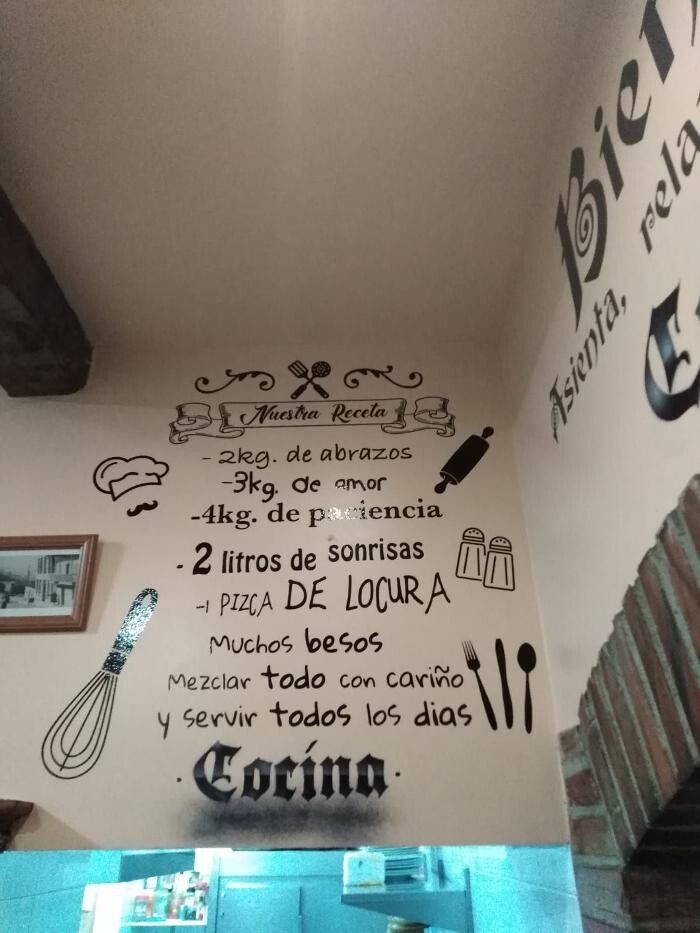 Nuestra Receta
- 2kg. de abrazos
-3kg. de amor
-4kg. de paciencia
- 2 litros de sonrisas
-1 PIZCA DE LOCURA
Muchos besos
Mezclar todo con cariño
y servir todos los dias
· Cocina ·
Asienta,